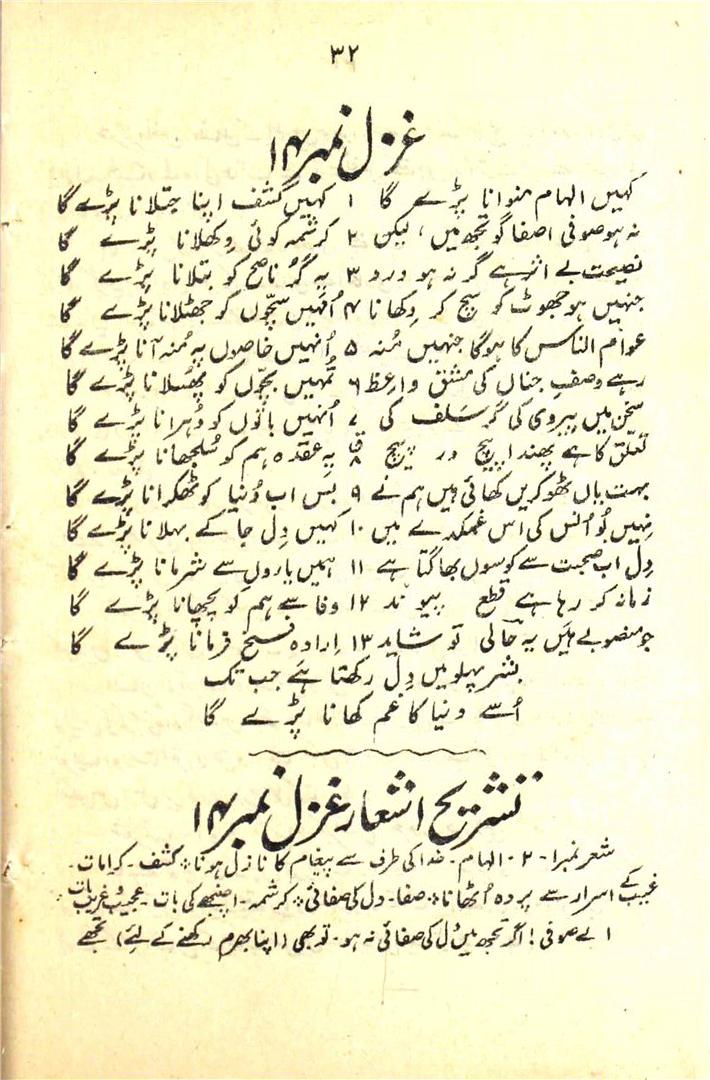 ۳۲
غزل نمبر ۱۴
کہیں الہام منوانا پڑے گا ۱ کہیں کشف اپنا جتلانا پڑے گا
نہ ہو صوفی اصفا گو تجھ میں، لیکن ۲ کرشمہ کوئی دِکھلانا پڑے گا
نصیحت بے اثر ہے گر نہ ہو درد ۳ یہ گُر ناصح کو بتلانا پڑے گا
جنہیں ہو جھوٹ کو سچ کر دِکھانا ۴ اُنہیں سچّوں کو جھٹلانا پڑے گا
عوام الناس کا ہوگا جنہیں مُنہ ۵ اُنہیں خاصوں پہ مُنہ آنا پڑے گا
رہے وصفِ جناں کی مشق واعظ ۶ تُمہیں بچّوں کو پھُسلانا پڑے گا
سخن میں پیروی کی گر سَلف کی ۷ اُنہیں باتوں کو دُہرانا پڑے گا
تعلّق کا ہے پھندا پیچ در پیچ ۸ ق یہ عقدہ ہم کو سُلجھانا پڑے گا
بہت یاں ٹھوکریں کھائی ہیں ہم نے ۹ بس اب دُنیا کو ٹھکرانا پڑے گا
نہیں بُو اُنس کی اس غمکدے میں ۱۰ کہیں دِل جا کے بہلانا پڑے گا
دِل اب صحبت سے کوسوں بھاگتا ہے ۱۱ ہمیں یاروں سے شرمانا پڑے گا
زمانہ کر رہا ہے قطع پیوند ۱۲ وفا سے ہم کو پچھتانا پڑے گا
جو منصوبے ہیں یہ حالی تو شاید ۱۳ اِرادہ فسخ فرمانا پڑے گا
بشر پہلو میں دِل رکھتا ہے جب تک
اُسے دنیا کا غم کھانا پڑے گا
تشریح اشعار غزل نمبر ۱۴
شعر نمبر ۱-۲- الہام۔ خدا کی طرف سے پیغام کا نازل ہونا؛ کشف۔ کرامات۔
غیب کے اسرار سے پردہ اُٹھانا؛ صفا۔ دل کی صفائی؛ کرشمہ۔ اچنبھے کی بات۔ عجیب و غریب بات
اے صوفی! اگر تجھ میں دل کی صفائی نہ ہو۔ تو بھی (اپنا بھرم رکھنے کے لئے) تجھے